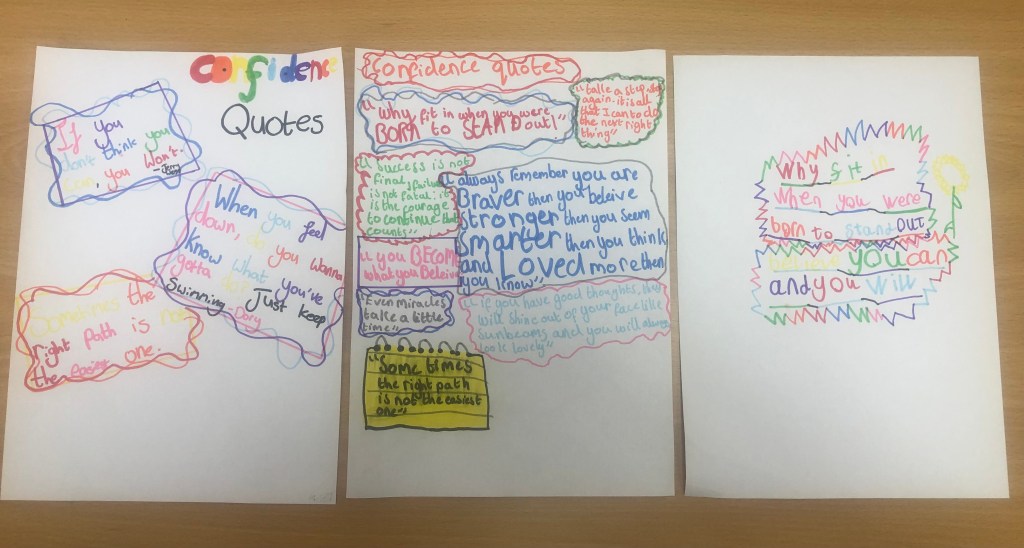 Confidence
Quotes
If you
don't think you
can, you Won't.
When you feel
down, do you wanna
know what you've
gotta do? Just keep
Swimming - Dory
Sometimes the
right path is not
the easiest one.
Confidence quotes
"Why fit in when you were
BORN to STAND out!"
"take a step
again. it is all
that I can to do
the next right
thing"
"Success is not
final, failure
is not fatal: it
is the courage
to continue that
counts"
"always remember you are
Braver then you beleive
stronger then you seem
smarter then you think
and Loved more then
you know"
"you BECOME
what you Beleive
"Even miracles
take a little
time"
"if you have good thoughts, they
will shine out of your face like
sunbeams and you will always
look lovely"
"Some times
the right path
is not the easiest
one"
Why fit in
When you were
born to stand OUT
Believe you can
and you Will